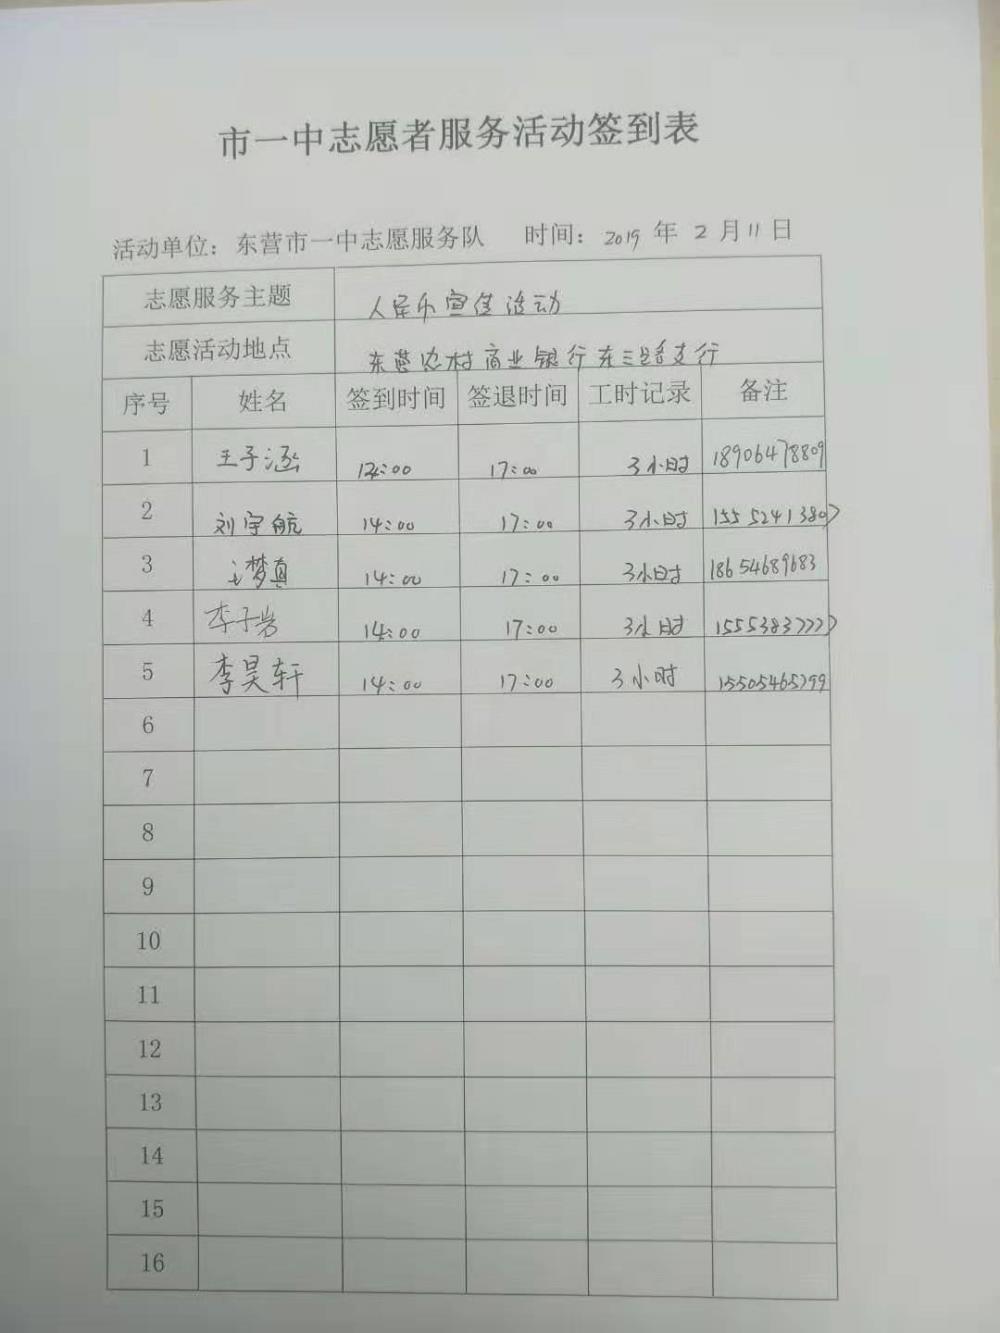 市一中志愿者服务活动签到表
活动单位：东营市一中志愿服务队 时间：2019 年 2 月 11 日
志愿服务主题 人民币宣传活动
志愿活动地点 东营农村商业银行东三路支行
序号 姓名 签到时间 签退时间 工时记录 备注
1 王子涵 14:00 17:00 3小时 18906478809
2 刘宇航 14:00 17:00 3小时 15552413807
3 王梦真 14:00 17:00 3小时 18654689683
4 李子岩 14:00 17:00 3小时 15553837777
5 李昊轩 14:00 17:00 3小时 15505465799
6
7
8
9
10
11
12
13
14
15
16